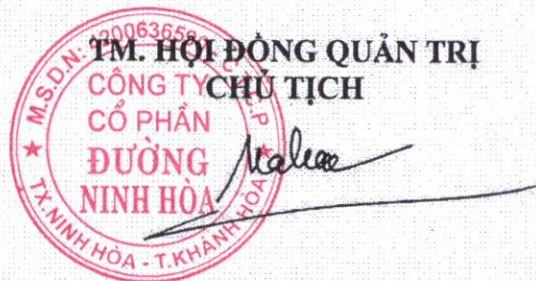 TM. HỘI ĐỒNG QUẢN TRỊ
CHỦ TỊCH
M.S.D.N:
C.P
CÔNG TY
CỔ PHẦN
ĐƯỜNG
NINH HÒA
TX.NINH HÒA - T.KHÁNH HÒA